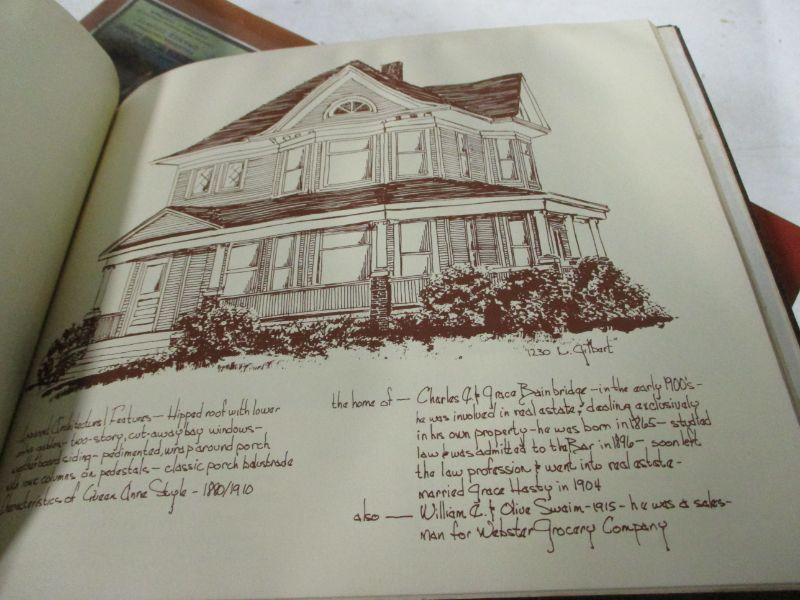 "1230 L. Gilbert"
Architectural Features— Hipped roof with lower
two-story, cut-away bay windows—
siding— pedimented, wrap around porch
columns on pedestals— classic porch balustrade
Characteristics of Queen Anne Style - 1880/1910
the home of — Charles A. & Grace Bainbridge—in the early 1900's—
he was involved in real estate, dealing exclusively
in his own property—he was born in 1865— studied
law & was admitted to the Bar in 1896— soon left
the law profession & went into real estate—
married Grace Hasty in 1904
also — William & Olive Swaim-1915-he was a sales-
man for Webster Grocery Company